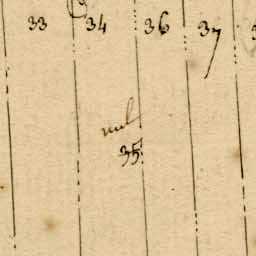 33 34 36 37
nul
35